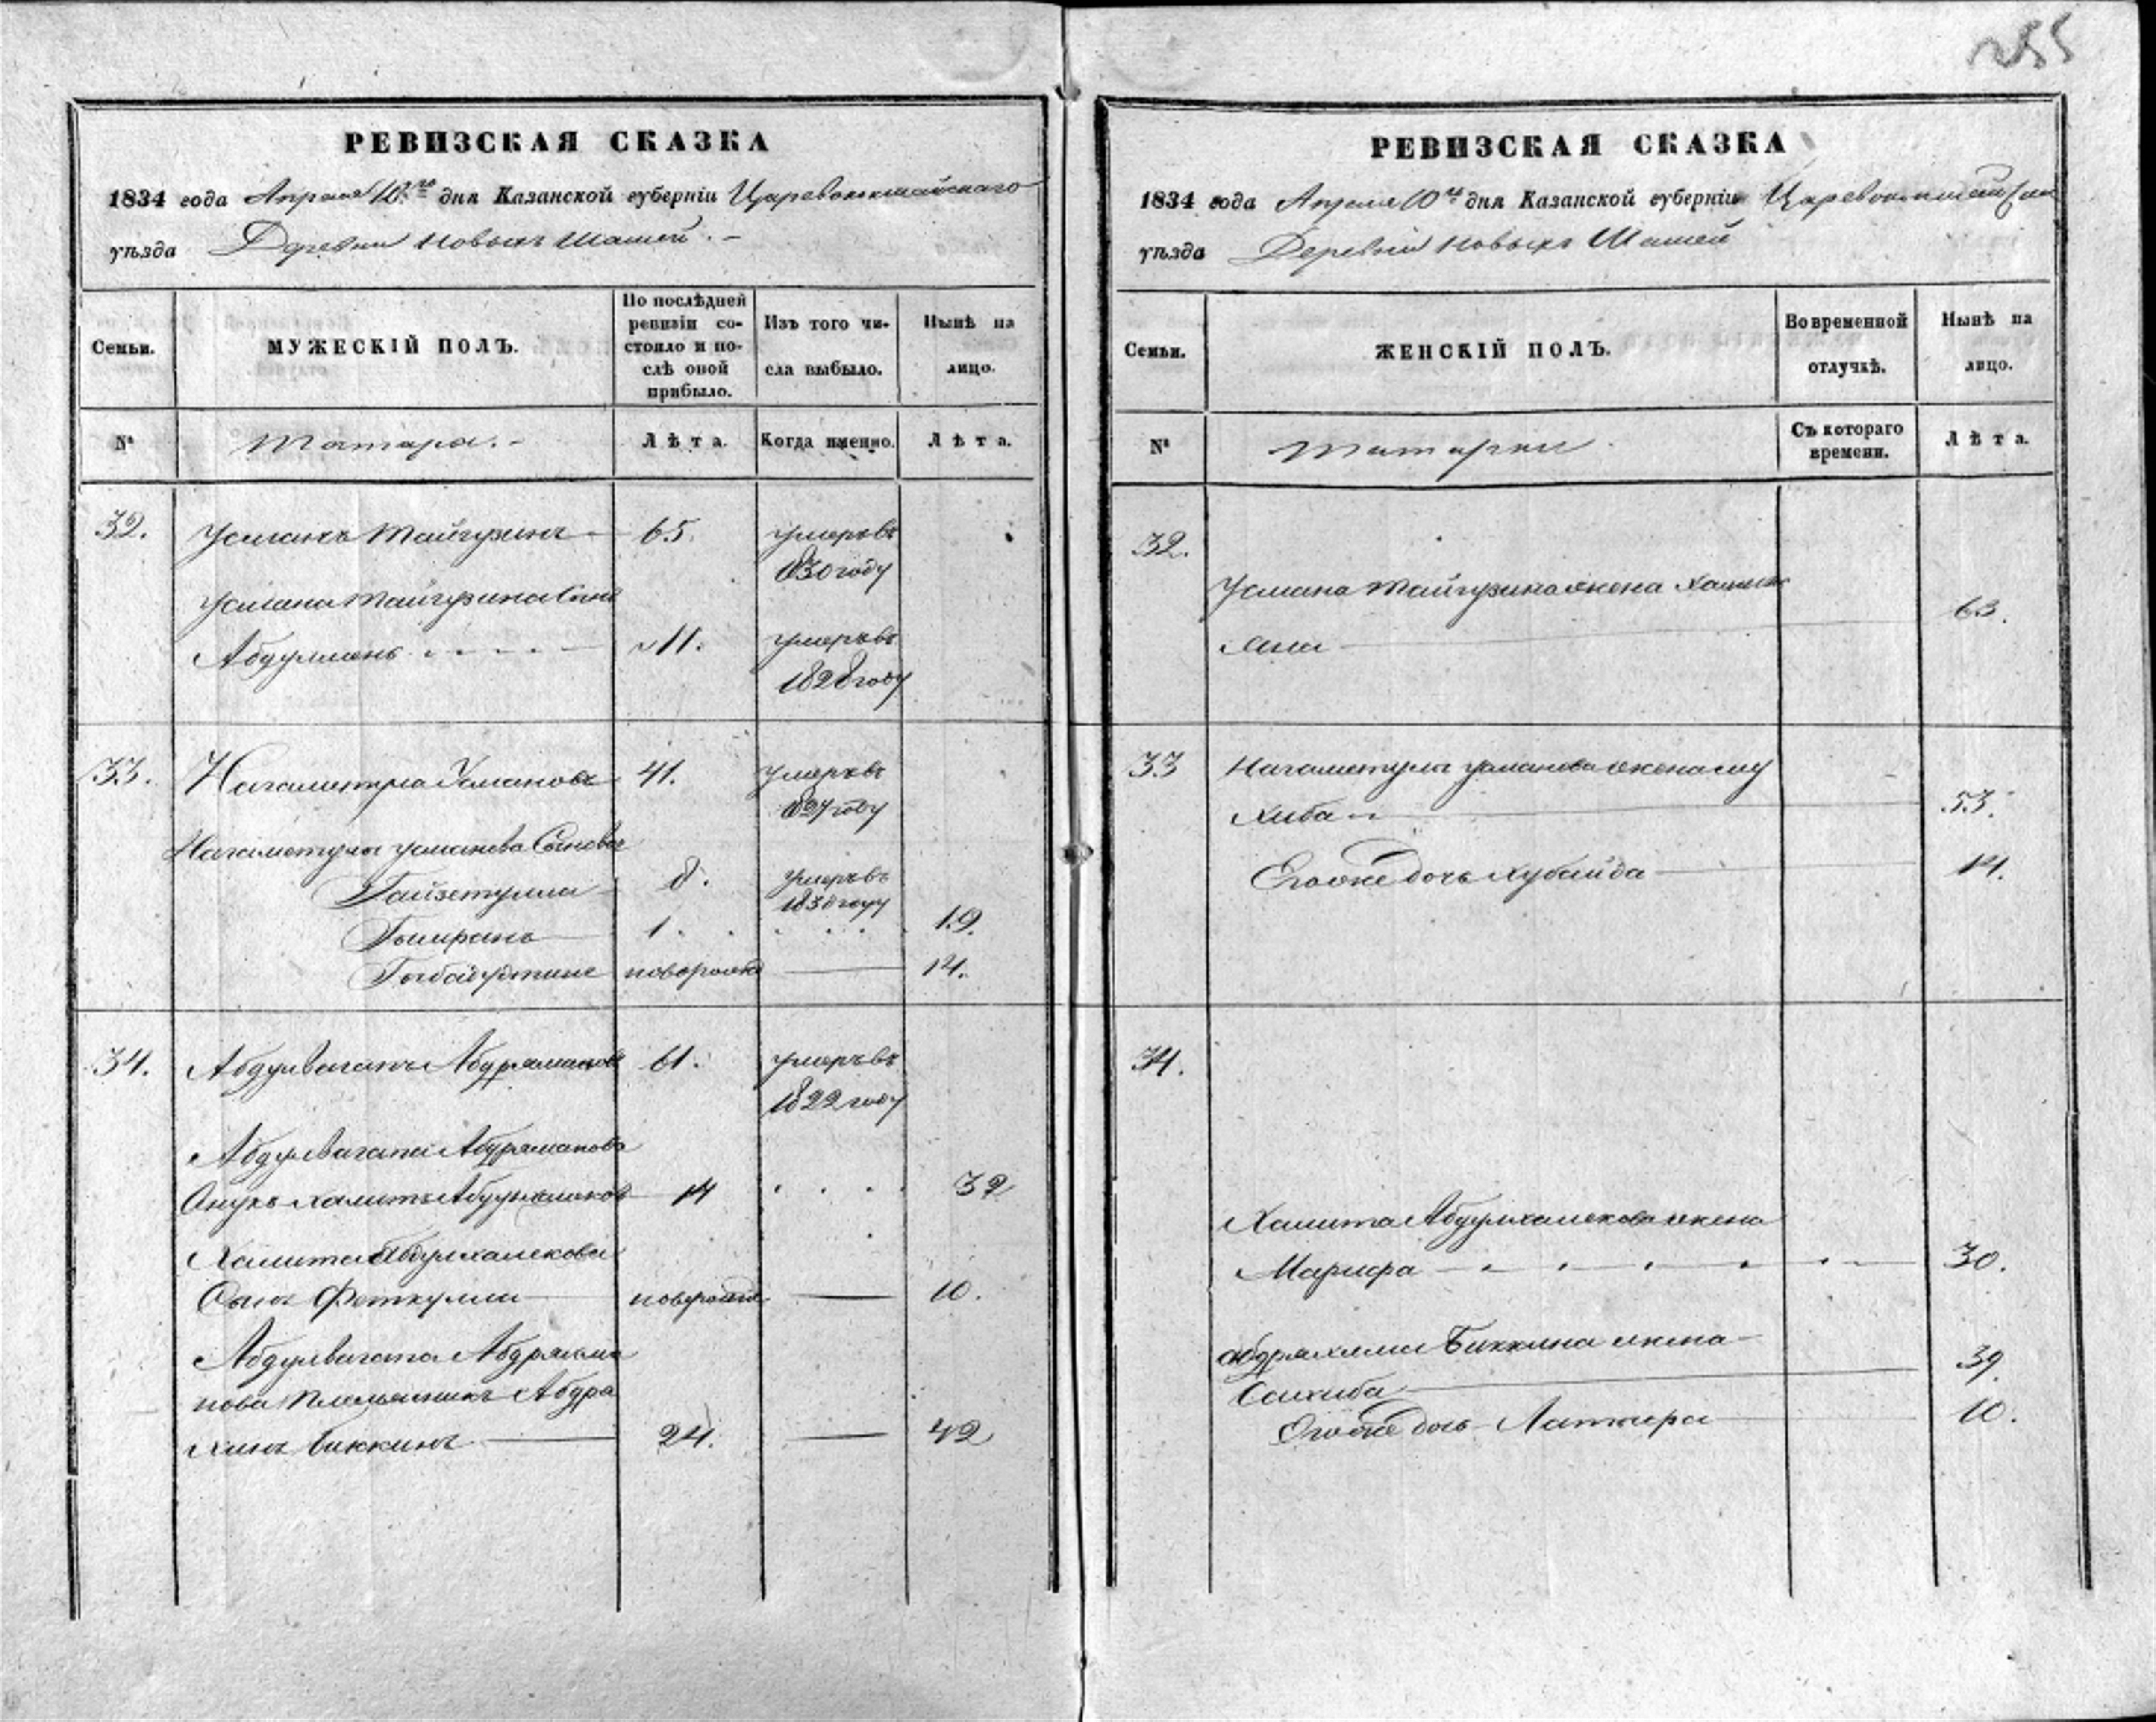 255
РЕВИЗСКАЯ СКАЗКА
1834 года Апреля 10го дня Казанской губерніи Царевококшайскаго
уѣзда Деревни Новыхъ Шашей.
Семьи.
МУЖЕСКІЙ ПОЛЪ.
По послѣдней ревизіи состояло и послѣ оной прибыло.
Изъ того числа выбыло.
Нынѣ на лицо.
№
Татара.
Лѣта.
Когда именно.
Лѣта.
32. Усманъ Майчуринъ 65. умеръ въ
1830 году
Усмана Майчурина Сынъ
Абдулменъ 11. умеръ въ
1828 году
33. Нагаметулла Усмановъ 41. умеръ въ
1827 году
Нагаметуллы Усманова Сыновья
Гайзетулла 8. умеръ въ
1830 году
1. 19.
новорожд 14.
34. Абдулвагапъ Абдрамановъ 61. умеръ въ
1822 году
Абдулвагапа Абдраманова
Внукъ Халитъ Абдулхалековъ 14 32
Халита Абдулхалекова
Сынъ Феткулла новорожд 10.
Абдулвагапа Абдрахма
нова Племянникъ Абдра
химъ Биккинъ 24. 42
РЕВИЗСКАЯ СКАЗКА
1834 года Апреля 10го дня Казанской губерніи Царевококшайскаго
уѣзда Деревни Новыхъ Шашей
Семьи.
ЖЕНСКІЙ ПОЛЪ.
Во временной отлучкѣ.
Нынѣ на лицо.
№
Татарки
Съ котораго времени.
Лѣта.
32.
Усмана Майчурина жена
63.
33 Нагаметуллы Усманова жена
хиба 53.
Его же дочь Хубайда 14.
34.
Халита Абдулхалекова жена
Марифа 30.
Абдрахима Биккина жена
Сахиба 39.
Его же дочь 10.